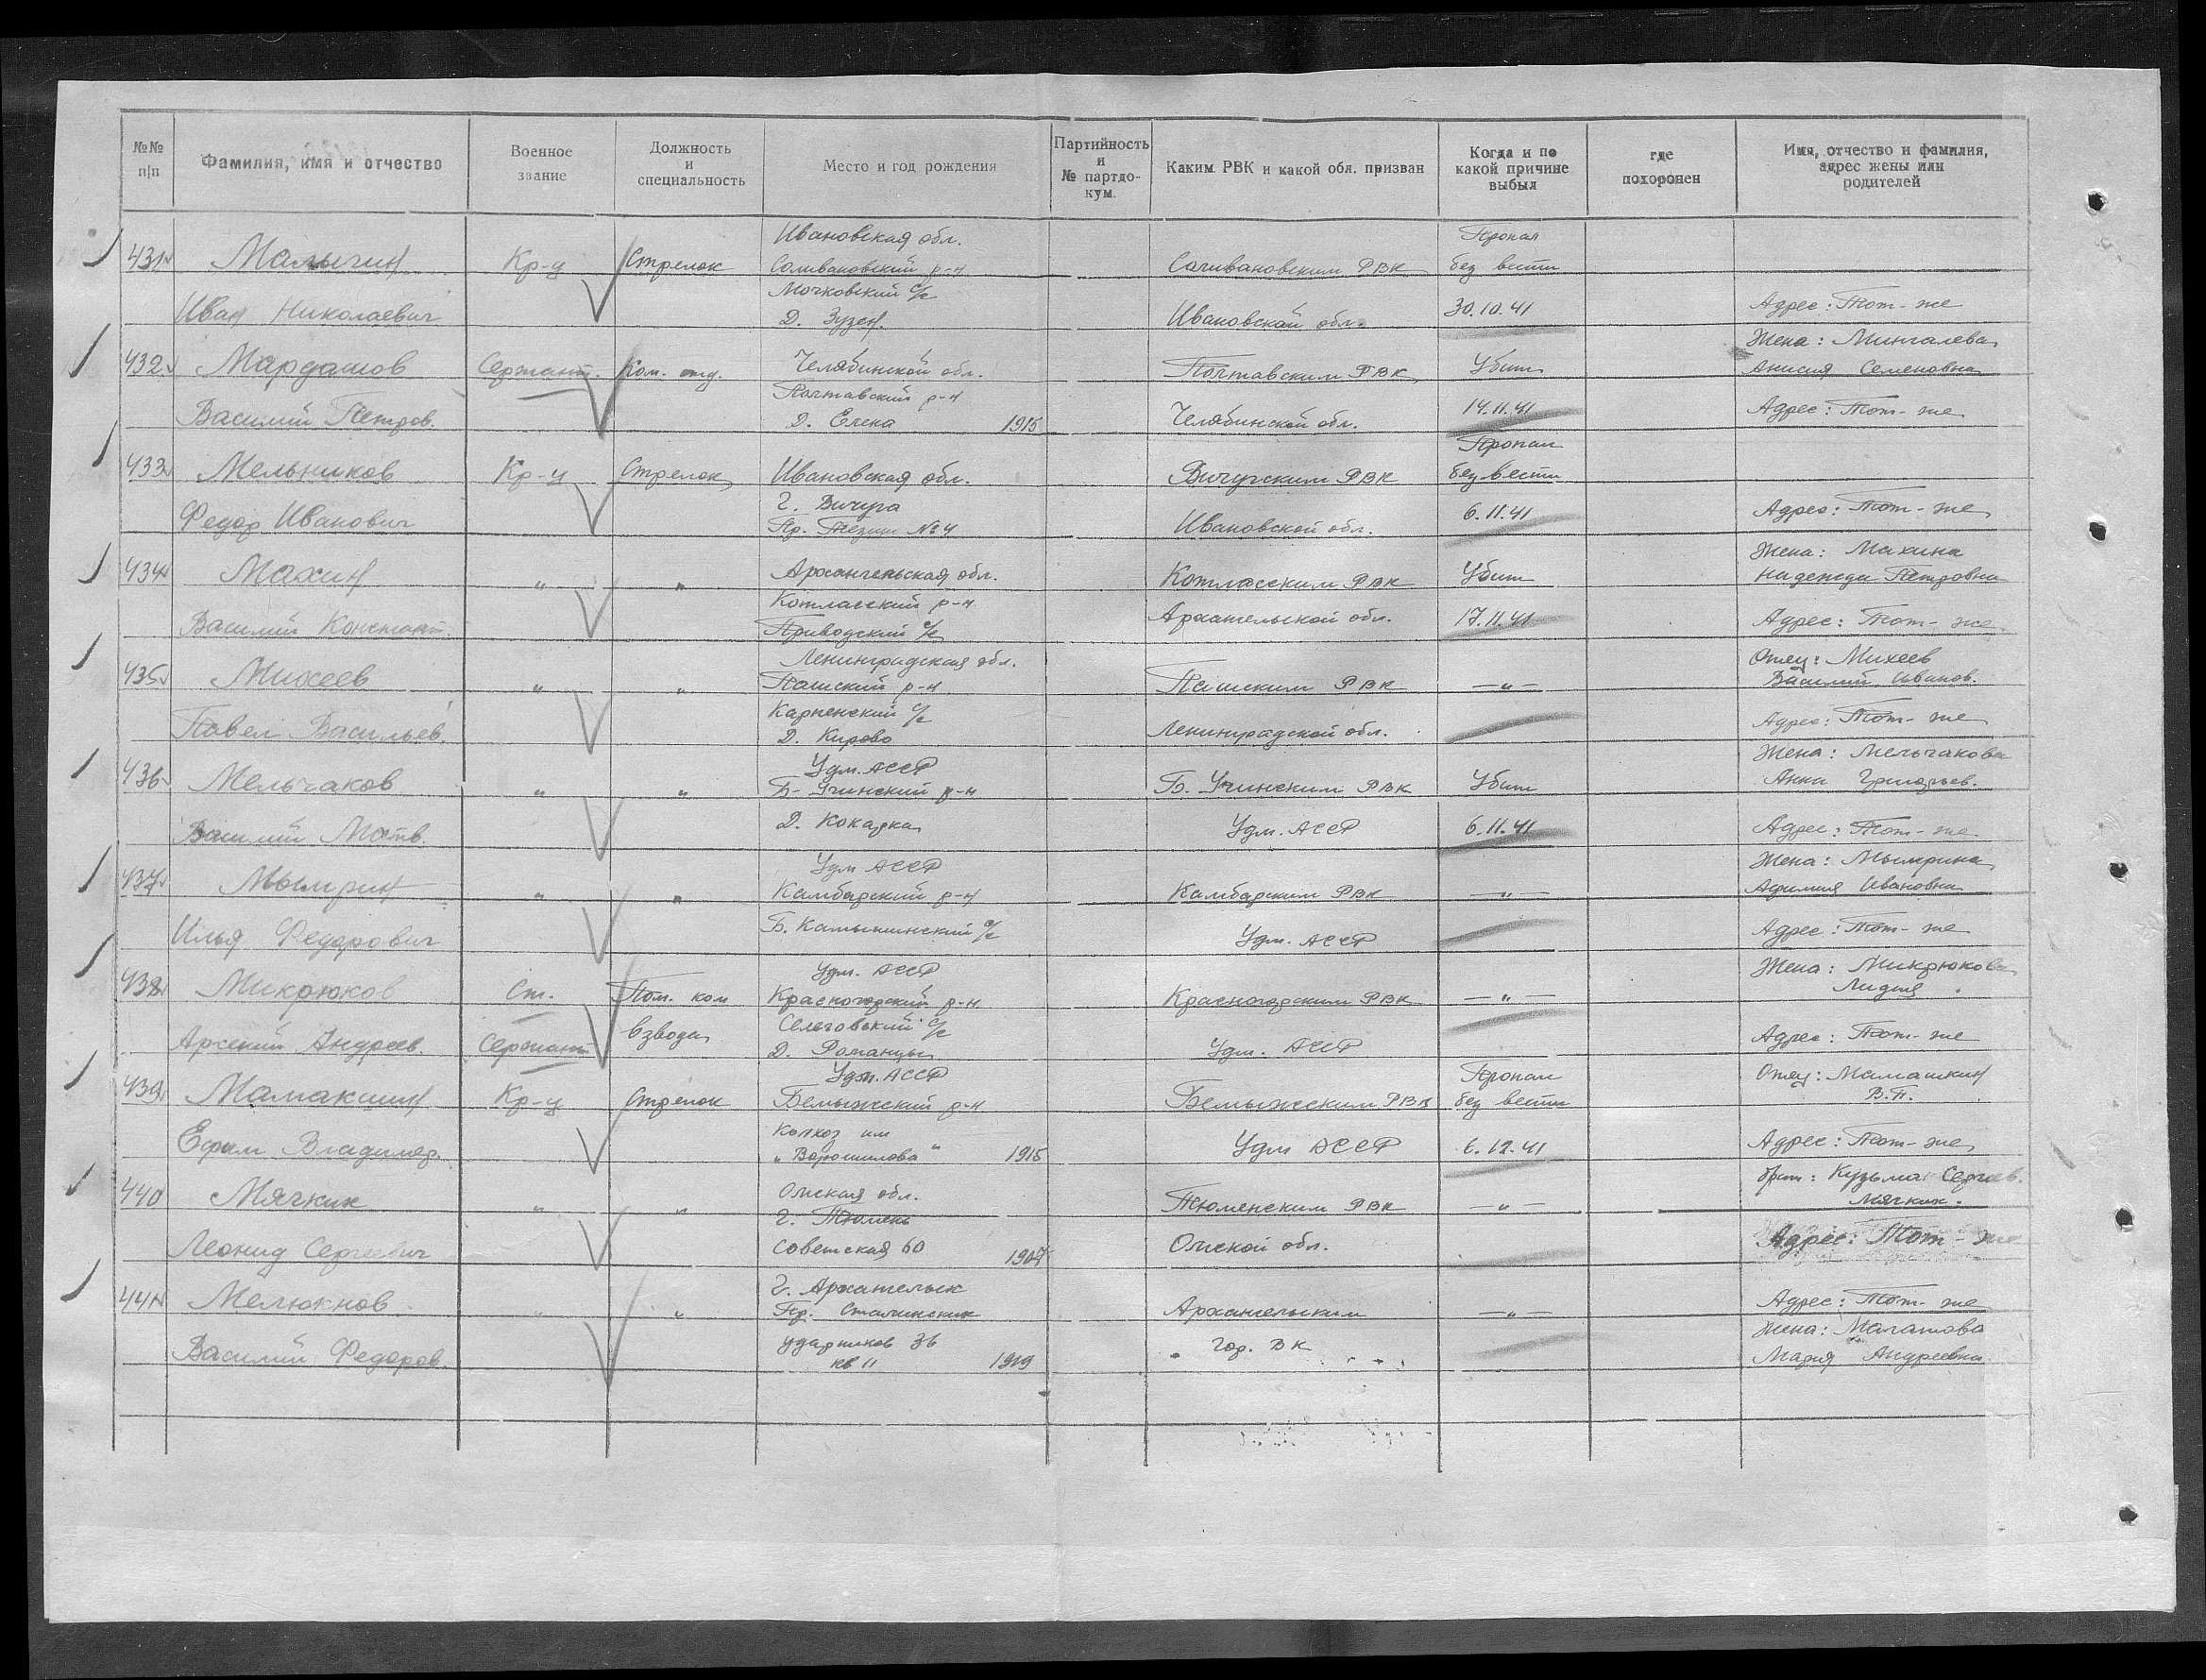 №№ п/п
Фамилия, имя и отчество
Военное звание
Должность и специальность
Место и год рождения
Партийность и № партдо-кум.
Каким РВК и какой обл. призван
Когда и по какой причине выбыл
где похоронен
Имя, отчество и фамилия, адрес жены или родителей
431 Малыгин Кр-ц Стрелок Ивановская обл. Пропал
Селивановский р-н Селивановским РВК без вести
Иван Николаевич Мочковский с/с Ивановской обл. 30.10.41 Адрес: Тот-же
Д.
432 Мардашов Сержант. Ком. отд. Челябинской обл. Полтавским РВК Убит Жена: Мингалева
Анисия Семеновна
Василий Петров. Полтавский р-н Челябинской обл. 14.11.41 Адрес: Тот-же
Д. Елена 1915
433 Мельников Кр-ц Стрелок Ивановская обл. Вичугским РВК Пропал
без вести
Федор Иванович г. Вичуга Ивановской обл. 6.11.41 Адрес: Тот-же
Пр. №4
434 Махин " " Архангельская обл. Котласским РВК Убит Жена: Махина
Надежда Петровна
Василий Констант. Котласский р-н Архангельской обл. 17.11.41 Адрес: Тот-же
Приводский с/с
435 Михеев " " Ленинградская обл. Пашским РВК — " — Отец: Михеев
Пашский р-н Василий Иванов.
Павел Васильев. Карпенский с/с Ленинградской обл. Адрес: Тот-же
Д. Кирово
436 Мельчаков " " Удм. АССР Б. Учинским РВК Убит Жена: Мельчакова
Б-Учинский р-н Анна Григорьев.
Василий Матв. Д. Удм. АССР 6.11.41 Адрес: Тот-же
437 Мымрин " " Удм АССР Камбарским РВК — " — Жена: Мымрина
Камбарский р-н Ивановна
Илья Федорович Б. Камышинский с/с Удм. АССР Адрес: Тот-же
438 Микрюков Ст. Пом. ком Удм. АССР Красногорским РВК — " — Жена: Микрюкова
Красногорский р-н Лидия
Арсений Андреев. Сержант взвода Селеговский с/с Удм. АССР Адрес: Тот-же
Д. Романцы
439 Мамакшин Кр-ц Стрелок Удм. АССР Бемыжским РВК Пропал Отец: Мамашкин
Бемыжский р-н без вести В.П.
Ефим Владимер. Колхоз им Удм АССР 6.12.41 Адрес: Тот-же
"Ворошилова" 1915
440 Мягких " " Омская обл. Тюменским РВК — " — брат: Кузьма Сергеев.
г. Тюмень Мягких.
Леонид Сергеевич Советская 60 1907 Омской обл. Адрес: Тот-же
441 Мелюкнов " " г. Архангельск Архангельским — " — Адрес: Тот-же
Пр. Сталинских Жена: Малашова
Василий Федоров. ударников 36 Гор. ВК Мария Андреевна
кв 11 1919